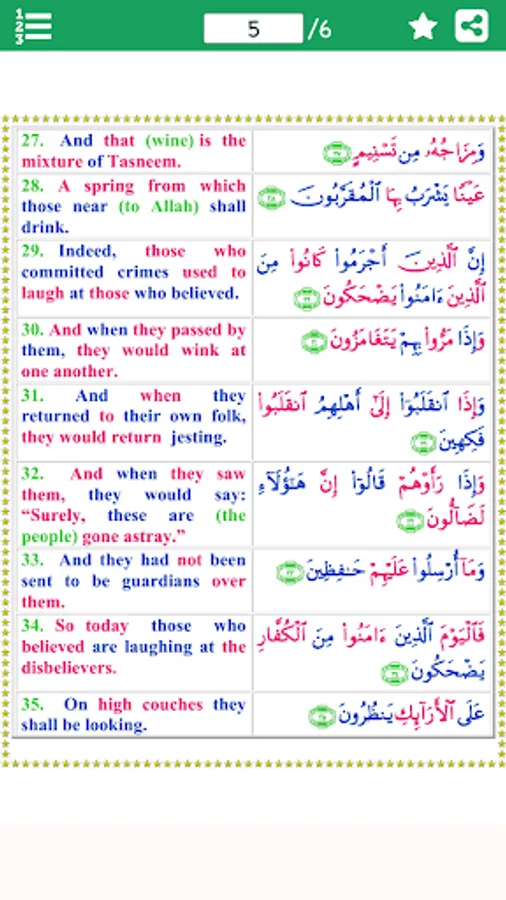 1
2
3
5 /6
27. And that (wine) is the
mixture of Tasneem.
وَمِزَاجُهُۥ مِن تَسْنِيمٍ ٢٧
28. A spring from which
those near (to Allah) shall
drink.
عَيْنًا يَشْرَبُ بِهَا ٱلْمُقَرَّبُونَ ٢٨
29. Indeed, those who
committed crimes used to
laugh at those who believed.
إِنَّ ٱلَّذِينَ أَجْرَمُوا۟ كَانُوا۟ مِنَ
ٱلَّذِينَ ءَامَنُوا۟ يَضْحَكُونَ ٢٩
30. And when they passed by
them, they would wink at
one another.
وَإِذَا مَرُّوا۟ بِهِمْ يَتَغَامَزُونَ ٣٠
31. And when they
returned to their own folk,
they would return jesting.
وَإِذَا ٱنقَلَبُوٓا۟ إِلَىٰٓ أَهْلِهِمُ ٱنقَلَبُوا۟
فَكِهِينَ ٣١
32. And when they saw
them, they would say:
“Surely, these are (the
people) gone astray.”
وَإِذَا رَأَوْهُمْ قَالُوٓا۟ إِنَّ هَـٰٓؤُلَآءِ
لَضَآلُّونَ ٣٢
33. And they had not been
sent to be guardians over
them.
وَمَآ أُرْسِلُوا۟ عَلَيْهِمْ حَـٰفِظِينَ ٣٣
34. So today those who
believed are laughing at the
disbelievers.
فَٱلْيَوْمَ ٱلَّذِينَ ءَامَنُوا۟ مِنَ ٱلْكُفَّارِ
يَضْحَكُونَ ٣٤
35. On high couches they
shall be looking.
عَلَى ٱلْأَرَآئِكِ يَنظُرُونَ ٣٥